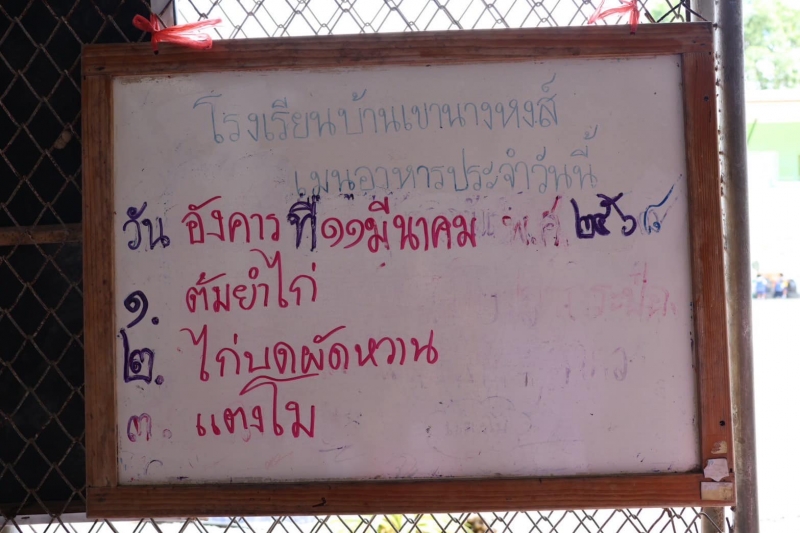 โรงเรียนบ้านเขานางหงส์
เมนูอาหารประจำวันนี้
วัน อังคาร ที่ ๑๑ มีนาคม พ.ศ. ๒๕๖๘
๑. ต้มยำไก่
๒. ไก่บดผัดหวาน
๓. แตงโม